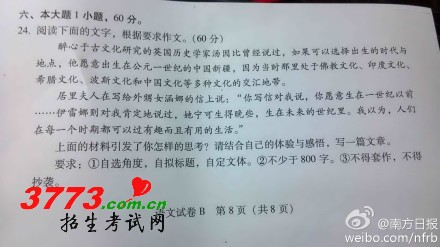 六、本大题1小题，60分。
24. 阅读下面的文字，根据要求作文。(60分)
醉心于古文化研究的英国历史学家汤因比曾经说过，如果可以选择出生的时代与
地点，他愿意出生在公元一世纪的中国新疆，因为当时那里处于佛教文化、印度文化、
希腊文化、波斯文化和中国文化等多种文化的交汇地带。
居里夫人在写给外甥女涵娜的信上说：“你写信对我说，你愿意生在一世纪以前
……伊雷娜则对我肯定地说过，她宁可生得晚些，生在未来的世纪里。我以为，人们
在每一个时期都可以过有趣而且有用的生活。”
上面的材料引发了你怎样的思考？请结合自己的体验与感悟，写一篇文章。
要求：①自选角度，自拟标题，自定文体。②不少于800字。③不得套作，不得
抄袭。
语文试卷B 第8页（共8页）
3773.com.cn
招生考试网
@南方日报
weibo.com/nfrb